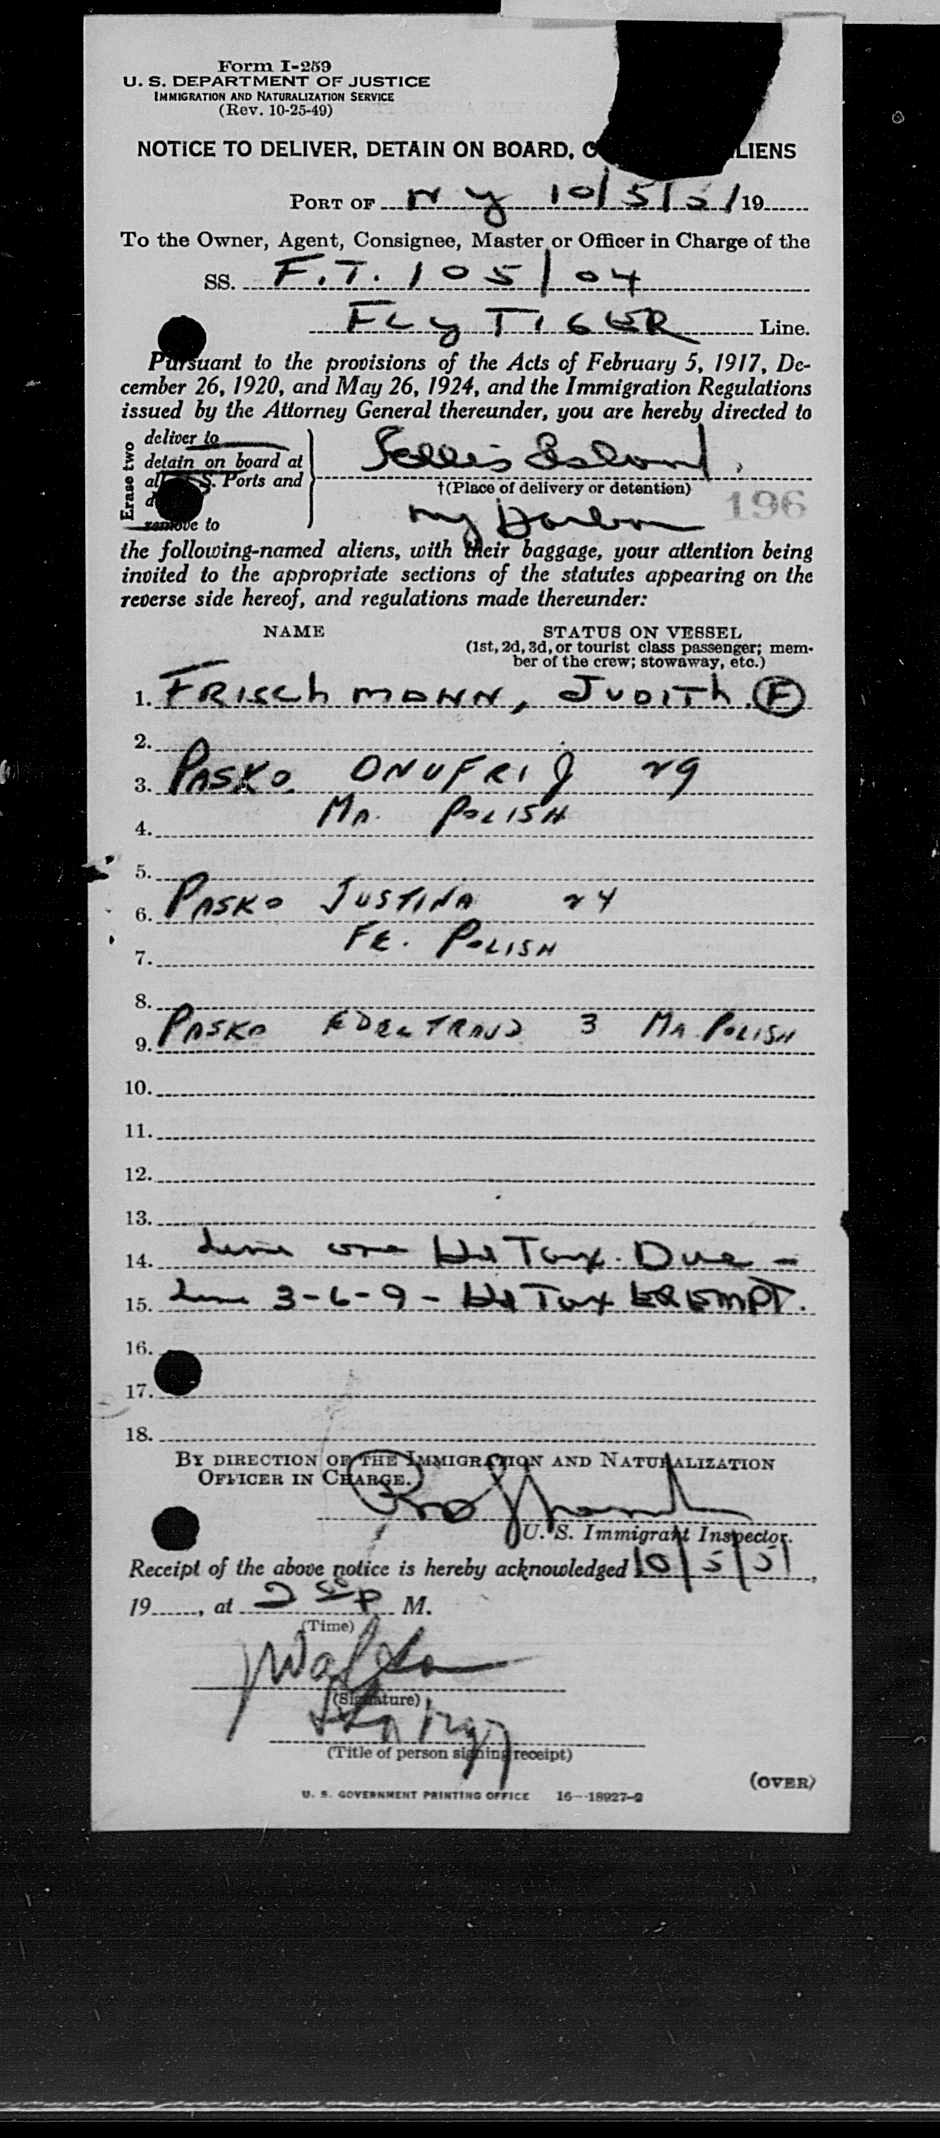 Form I-259
U. S. DEPARTMENT OF JUSTICE
IMMIGRATION AND NATURALIZATION SERVICE
(Rev. 10-25-49)
NOTICE TO DELIVER, DETAIN ON BOARD, LIENS
PORT OF N Y 10/5/51 19
To the Owner, Agent, Consignee, Master or Officer in Charge of the
SS. F.T. 105/04
FLY TIGER Line.
Pursuant to the provisions of the Acts of February 5, 1917, De-
cember 26, 1920, and May 26, 1924, and the Immigration Regulations
issued by the Attorney General thereunder, you are hereby directed to
Erase two
deliver to
detain on board at
al S. Ports and
remove to
Ellis Island,
†(Place of delivery or detention)
196
NY Harbor
the following-named aliens, with their baggage, your attention being
invited to the appropriate sections of the statutes appearing on the
reverse side hereof, and regulations made thereunder:
NAME STATUS ON VESSEL
(1st, 2d, 3d, or tourist class passenger; mem-
ber of the crew; stowaway, etc.)
1. FRISCHMANN, JUDITH. F
2.
3. PASKO ONUFRIJ 29
4. MA. POLISH
5.
6. PASKO JUSTINA 24
7. FE. POLISH
8.
9. PASKO EDELTRAUD 3 MA. POLISH
10.
11.
12.
13.
14. Line one Hd Tax Due -
15. Line 3-6-9 - Hd Tax EXEMPT.
16.
17.
18.
BY DIRECTION OF THE IMMIGRATION AND NATURALIZATION
OFFICER IN CHARGE.
U. S. Immigrant Inspector.
Receipt of the above notice is hereby acknowledged 10/5/51,
19, at 2 P M.
(Time)
(Signature)
(Title of person signing receipt)
(OVER)
U. S. GOVERNMENT PRINTING OFFICE 16—18927-2